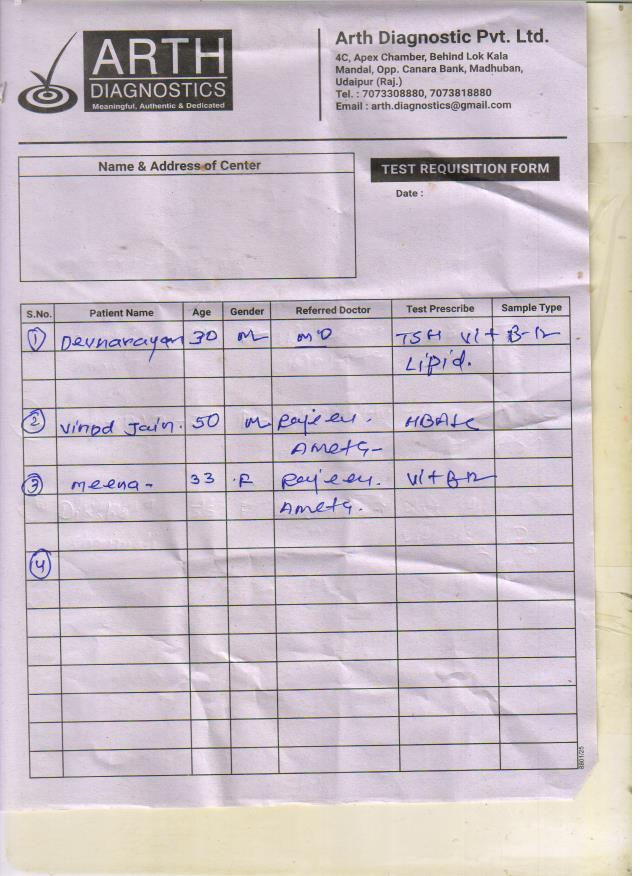 ARTH
DIAGNOSTICS
Meaningful, Authentic & Dedicated
Arth Diagnostic Pvt. Ltd.
4C, Apex Chamber, Behind Lok Kala
Mandal, Opp. Canara Bank, Madhuban,
Udaipur (Raj.)
Tel. : 7073308880, 7073818880
Email : arth.diagnostics@gmail.com
Name & Address of Center
TEST REQUISITION FORM
Date :
S.No. Patient Name Age Gender Referred Doctor Test Prescribe Sample Type
1 Devnarayan 30 M MD TSH Vit B-12
Lipid.
2 Vinod Jain. 50 M Rajeev. HBA1c
Ameta-
3 Meena- 33 F Rajeev. Vit B12
Ameta.
4
8801/25